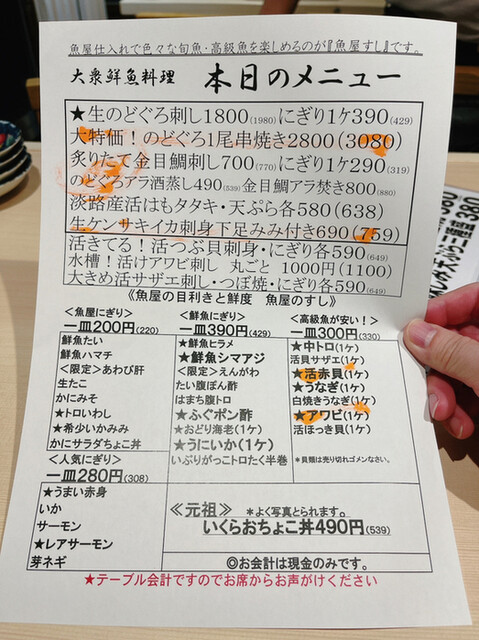 魚屋仕入れで色々な旬魚・高級魚を楽しめるのが『魚屋すし』です。
大衆鮮魚料理 本日のメニュー
★生のどぐろ刺し1800(1980)にぎり1ケ390(429)
大特価!のどぐろ1尾串焼き2800(3080)
炙りたて金目鯛刺し700(770)にぎり1ケ290(319)
のどぐろアラ酒蒸し490(539)金目鯛アラ焚き800(880)
淡路産活はもタタキ・天ぷら各580(638)
生ケンサキイカ刺身下足みみ付き690(759)
活きてる!活つぶ貝刺身・にぎり各590(649)
水槽!活けアワビ刺し 丸ごと 1000円(1100)
大きめ活サザエ刺し・つぼ焼・にぎり各590(649)
《魚屋の目利きと鮮度 魚屋のすし》
<魚屋にぎり>
一皿200円(220)
鮮魚たい
鮮魚ハマチ
<限定>あわび肝
生たこ
かにみそ
★トロいわし
★希少いかみみ
かにサラダちょこ丼
<人気にぎり>
一皿280円(308)
★うまい赤身
いか
サーモン
★レアサーモン
芽ネギ
<鮮魚にぎり>
一皿390円(429)
★鮮魚ヒラメ
★鮮魚シマアジ
<限定>えんがわ
たい腹ぽん酢
はまち腹トロ
★ふぐポン酢
★おどり海老(1ケ)
★うにいか(1ケ)
いぶりがっこトロたく半巻
<高級魚が安い!>
一皿300円(330)
★中トロ(1ケ)
活貝サザエ(1ケ)
★活赤貝(1ケ)
★うなぎ(1ケ)
白焼きうなぎ(1ケ)
★アワビ(1ケ)
活ほっき貝(1ケ)
*貝類は売り切れゴメンなさい。
≪元祖≫ *よく写真とられます。
いくらおちょこ丼490円(539)
◎お会計は現金のみです。
★テーブル会計ですのでお席からお声がけください